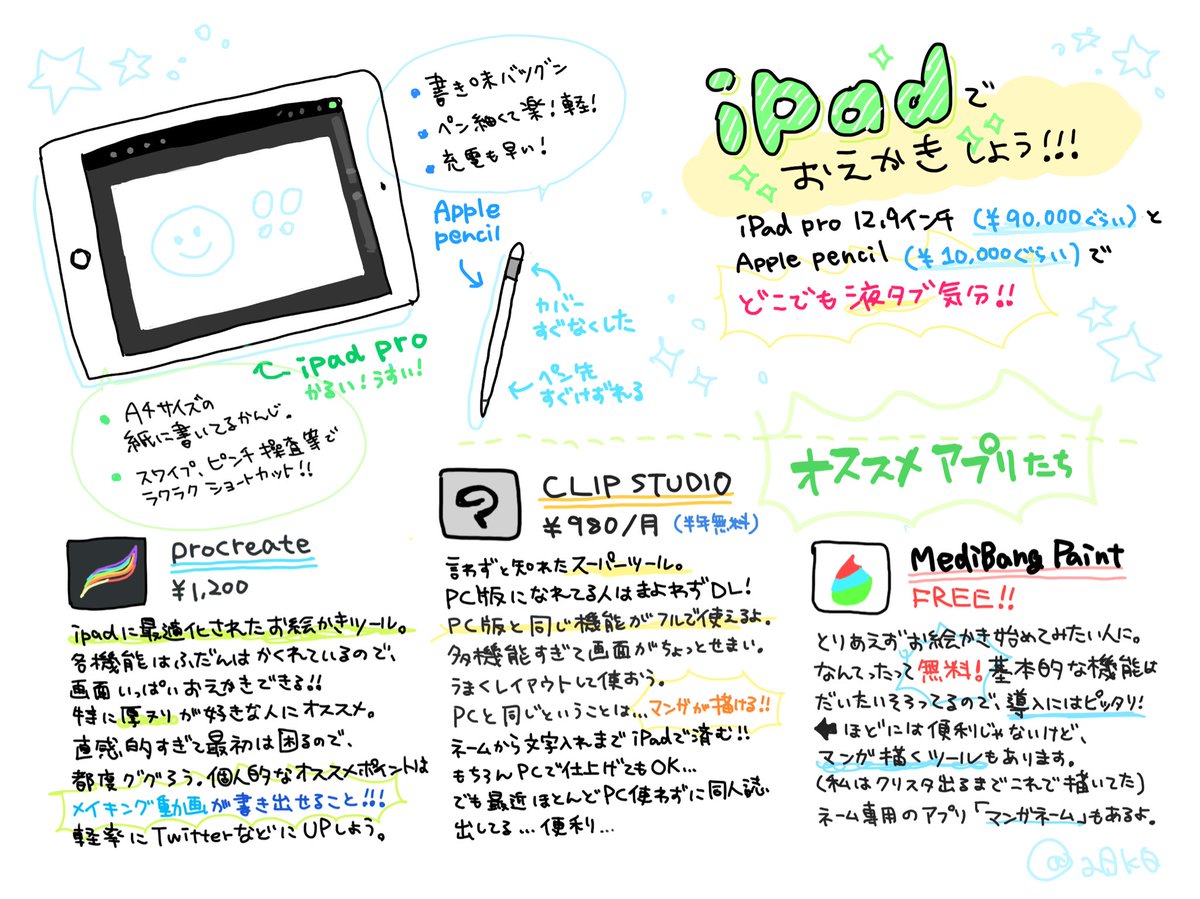 iPadで
おえかきしよう!!!
iPad pro 12.9インチ (¥90,000ぐらい)と
Apple pencil (¥10,000ぐらい)で
どこでも液タブ気分!!
・書き味バツグン
・ペン細くて楽!軽!
・充電も早い!
Apple
pencil
カバー
すぐなくした
ペン先
すぐけずれる
ipad pro
かるい!うすい!
・A4サイズの
紙に書いてるかんじ。
・スワイプ、ピンチ操査等で
ラクラクショートカット!!
オススメアプリたち
procreate
¥1,200
ipadに最適化されたお絵かきツール。
各機能はふだんはかくれているので、
画面いっぱいおえかきできる!!
特に厚ヌリが好きな人にオススメ。
直感的すぎて最初は困るので、
都度ググろう。個人的なオススメポイントは
メイキング動画が書き出せること!!!
軽率にTwitterなどにUPしよう。
CLIP STUDIO
¥980/月 (半年無料)
言わずと知れたスーパーツール。
PC版になれてる人はまよわずDL!
PC版と同じ機能がフルで使えるよ。
多機能すぎて画面がちょっとせまい。
うまくレイアウトして使おう。
PCと同じということは...マンガが描ける!!
ネームから文字入れまでiPadで済む!!
もちろんPCで仕上げてもOK...
でも最近ほとんどPC使わずに同人誌
出してる...便利...
MediBang Paint
FREE!!
とりあえずお絵かき始めてみたい人に。
なんてったって無料!基本的な機能は
だいたいそろってるので、導入にはピッタリ!
←ほどには便利じゃないけど、
マンガ描くツールもあります。
(私はクリスタ出るまでこれで描いてた)
ネーム専用のアプリ「マンガネーム」もあるよ。